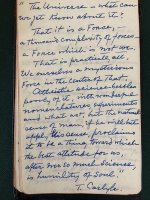 "The Universe – what can
we yet know about it?
That it is a Force,
a thousand complexity of forces –
a Force which is not we.
That is practically all.
We ourselves a mysterious
Force in the centre of That.
Atheistic science babbles
poorly of it, with
nomenclatures, experiments
and what not, but the natural
sense of man, if he will but
apply his sense, proclaims
it to be a thing toward which
the best attitude for us,
after ever so much science,
is humility of Soul."
T. Carlyle.